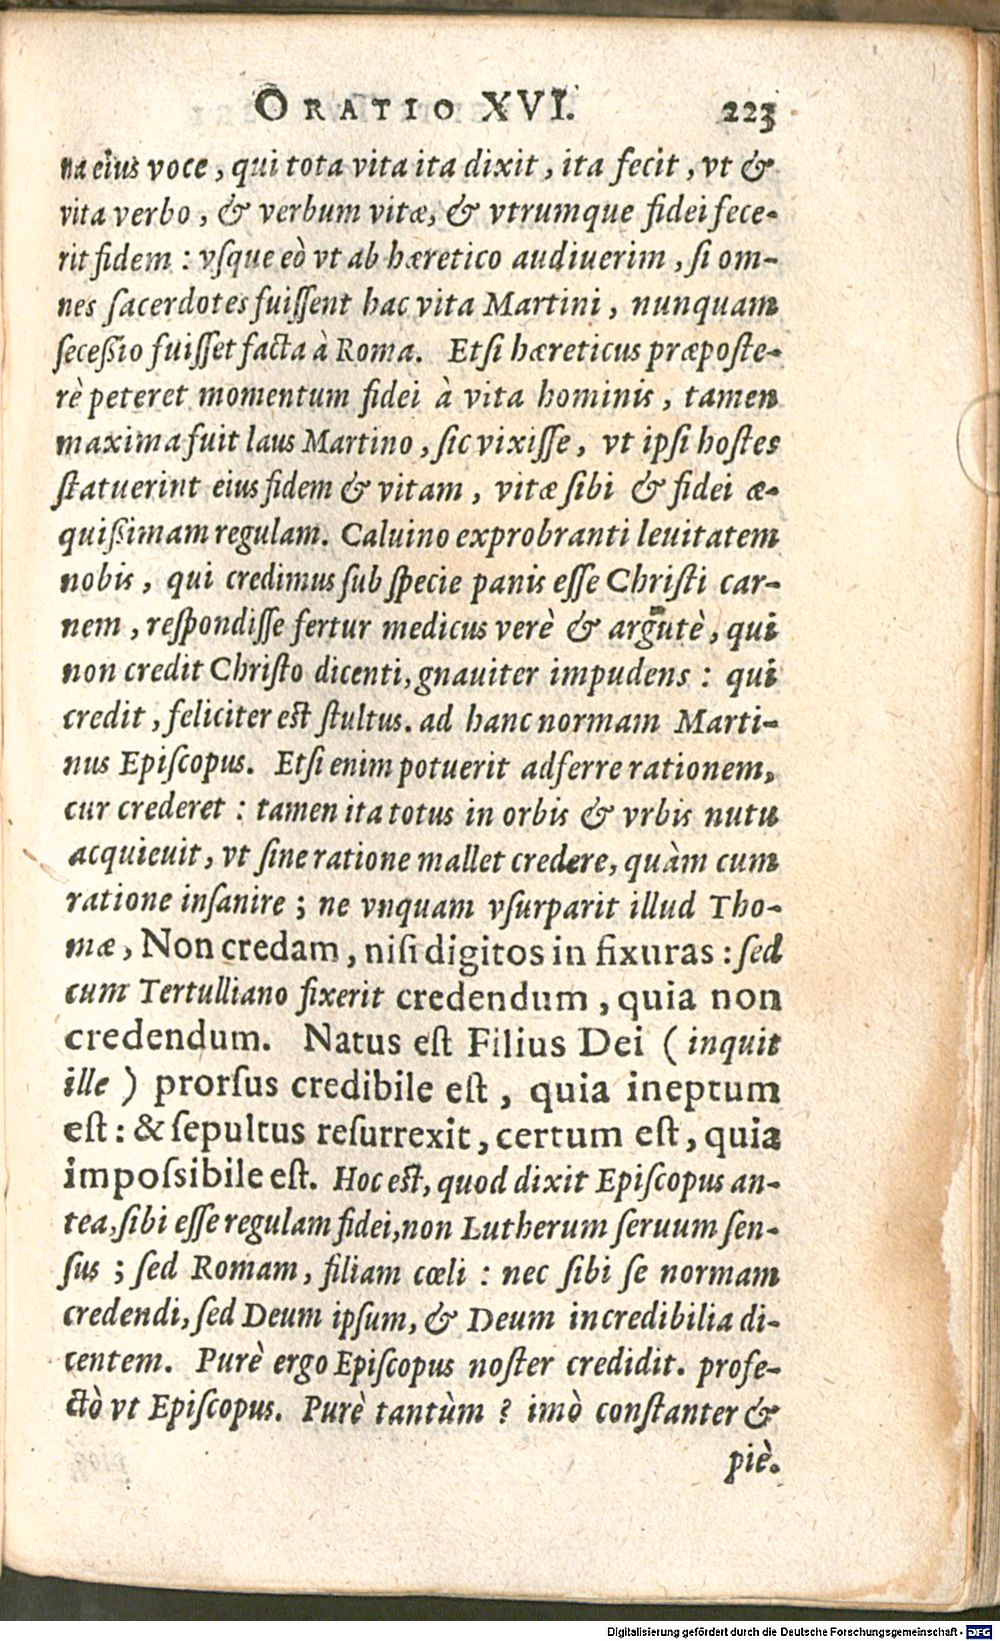 ORATIO XVI. 223
na eius voce, qui tota vita ita dixit, ita fecit, vt &
vita verbo, & verbum vitæ, & vtrumque fidei fece-
rit fidem: vſque eò vt ab hæretico audiuerim, ſi om-
nes ſacerdotes fuiſſent hac vita Martini, nunquam
ſeceſſio fuiſſet facta à Roma. Etſi hæreticus præpoſte-
rè peteret momentum fidei à vita hominis, tamen
maxima fuit laus Martino, ſic vixiſſe, vt ipſi hoſtes
ſtatuerint eius fidem & vitam, vitæ ſibi & fidei æ-
quiſſimam regulam. Caluino exprobranti leuitatem
nobis, qui credimus ſub ſpecie panis eſſe Chriſti car-
nem, reſpondiſſe fertur medicus verè & argutè, qui
non credit Chriſto dicenti, gnauiter impudens: qui
credit, feliciter eſt ſtultus. ad hanc normam Marti-
nus Epiſcopus. Etſi enim potuerit adferre rationem,
cur crederet: tamen ita totus in orbis & vrbis nutu
acquieuit, vt ſine ratione mallet credere, quàm cum
ratione inſanire; ne vnquam vſurparit illud Tho-
mæ, Non credam, niſi digitos in fixuras: ſed
cum Tertulliano fixerit credendum, quia non
credendum. Natus eſt Filius Dei (inquit
ille) prorſus credibile eſt, quia ineptum
eſt: & ſepultus reſurrexit, certum eſt, quia
impoſsibile eſt. Hoc eſt, quod dixit Epiſcopus an-
tea, ſibi eſſe regulam fidei, non Lutherum ſeruum ſen-
ſus; ſed Romam, filiam cœli: nec ſibi ſe normam
credendi, ſed Deum ipſum, & Deum incredibilia di-
centem. Purè ergo Epiſcopus noſter credidit. profe-
ctò vt Epiſcopus. Purè tantùm? imò conſtanter &
piè.
Digitalisierung gefördert durch die Deutsche Forschungsgemeinschaft - DFG